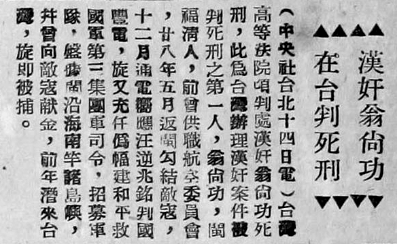 漢奸翁尙功
在台判死刑
（中央社台北十四日電）台灣
高等法院頃判處漢奸翁尙功死
刑，此爲台灣辦理漢奸案件被
判死刑之第一人，翁尙功，閩
福清人，前曾供職航空委員會
，廿八年五月返閩勾結敵寇，
十二月通電響應汪逆兆銘判國
電，旋又充任僞福建和平救
國軍第三集團軍司令，招募軍
隊，盤據閩沿海南竿諸島嶼，
幷曾向敵寇献金，前年潛來台
灣，旋即被捕。